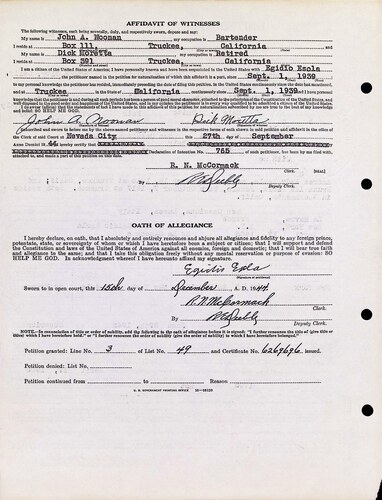 AFFIDAVIT OF WITNESSES
The following witnesses, each being severally, duly, and respectively sworn, depose and say:
My name is John A. Noonan, my occupation is Bartender
I reside at Box 111, Truckee, California and
My name is Dick Moretta, my occupation is Retired
I reside at Box 391 Truckee, California
I am a citizen of the United States of America; I have personally known and have been acquainted in the United States with Egidio Esola
, the petitioner named in the petition for naturalization of which this affidavit is a part, since Sept. 1, 1939
to my personal knowledge the petitioner has resided, immediately preceding the date of filing this petition, in the United States continuously since the date last mentioned,
and at Truckee in the State of California continuously since Sept. 1, 1939
John A. Noonan Dick Moretta
Subscribed and sworn to before me by the above-named petitioner and witnesses in the respective forms of oath shown in said petition and affidavit in the office of the
Clerk of said Court at Nevada City this 27th day of September
Anno Domini 19 44
Declaration of Intention No. 765 of said petitioner, has been by me filed with,
attached to, and made a part of this petition on this date.
R. N. McCormack
Clerk. [SEAL]
By
Deputy Clerk.
OATH OF ALLEGIANCE
I hereby declare, on oath, that I absolutely and entirely renounce and abjure all allegiance and fidelity to any foreign prince,
potentate, state, or sovereignty of whom or which I have heretofore been a subject or citizen; that I will support and defend
the Constitution and laws of the United States of America against all enemies, foreign and domestic; that I will bear true faith
and allegiance to the same; and that I take this obligation freely without any mental reservation or purpose of evasion: SO
HELP ME GOD. In acknowledgment whereof I have hereunto affixed my signature.
Sworn to in open court, this 15th day of December, A. D. 1944.
R. N. McCormack
Clerk.
By
Deputy Clerk.
NOTE.—In renunciation of title or order of nobility, add the following to the oath of allegiance before it is signed: "I further renounce the title of (give title or
titles) which I have heretofore held," or "I further renounce the order of nobility (give the order of nobility) to which I have heretofore belonged."
Petition granted: Line No. 3 of List No. 49 and Certificate No. 6269696 issued.
Petition denied: List No.
Petition continued from to Reason
U. S. GOVERNMENT PRINTING OFFICE